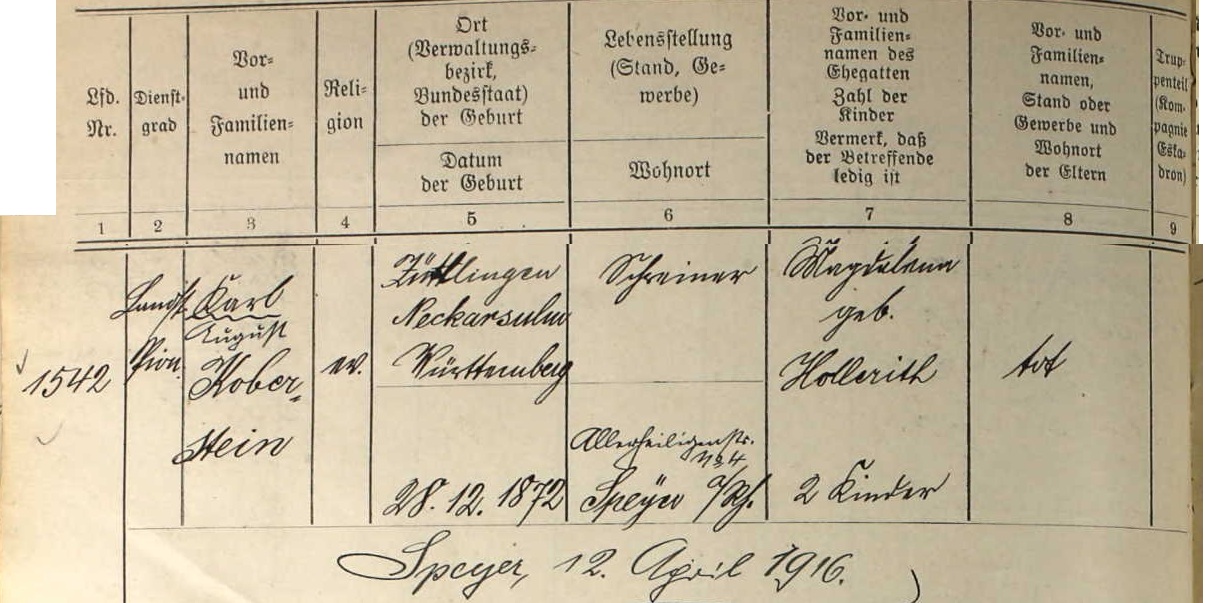 Lfd.
Nr.
Dienst-
grad
Vor-
und
Familien-
namen
Reli-
gion
Ort
(Verwaltungs-
bezirk,
Bundesstaat)
der Geburt
Datum
der Geburt
Lebensstellung
(Stand, Ge-
werbe)
Wohnort
Vor- und
Familien-
namen des
Ehegatten
Zahl der
Kinder
Vermerk, daß
der Betreffende
ledig ist
Vor- und
Familien-
namen,
Stand oder
Gewerbe und
Wohnort
der Eltern
Trup-
penteil
(Kom-
pagnie
Eska-
dron)
1 2 3 4 5 6 7 8 9
1542
Landst.
Pion.
Karl
August
Kober-
stein
ev.
Züttlingen
Neckarsulm
Württemberg
28. 12. 1872
Schreiner
Allerheiligenstr.
No 4
Speyer a/Rh.
Magdalena
geb.
Hollerith
2 Kinder
tot
Speyer, 12. April 1916.